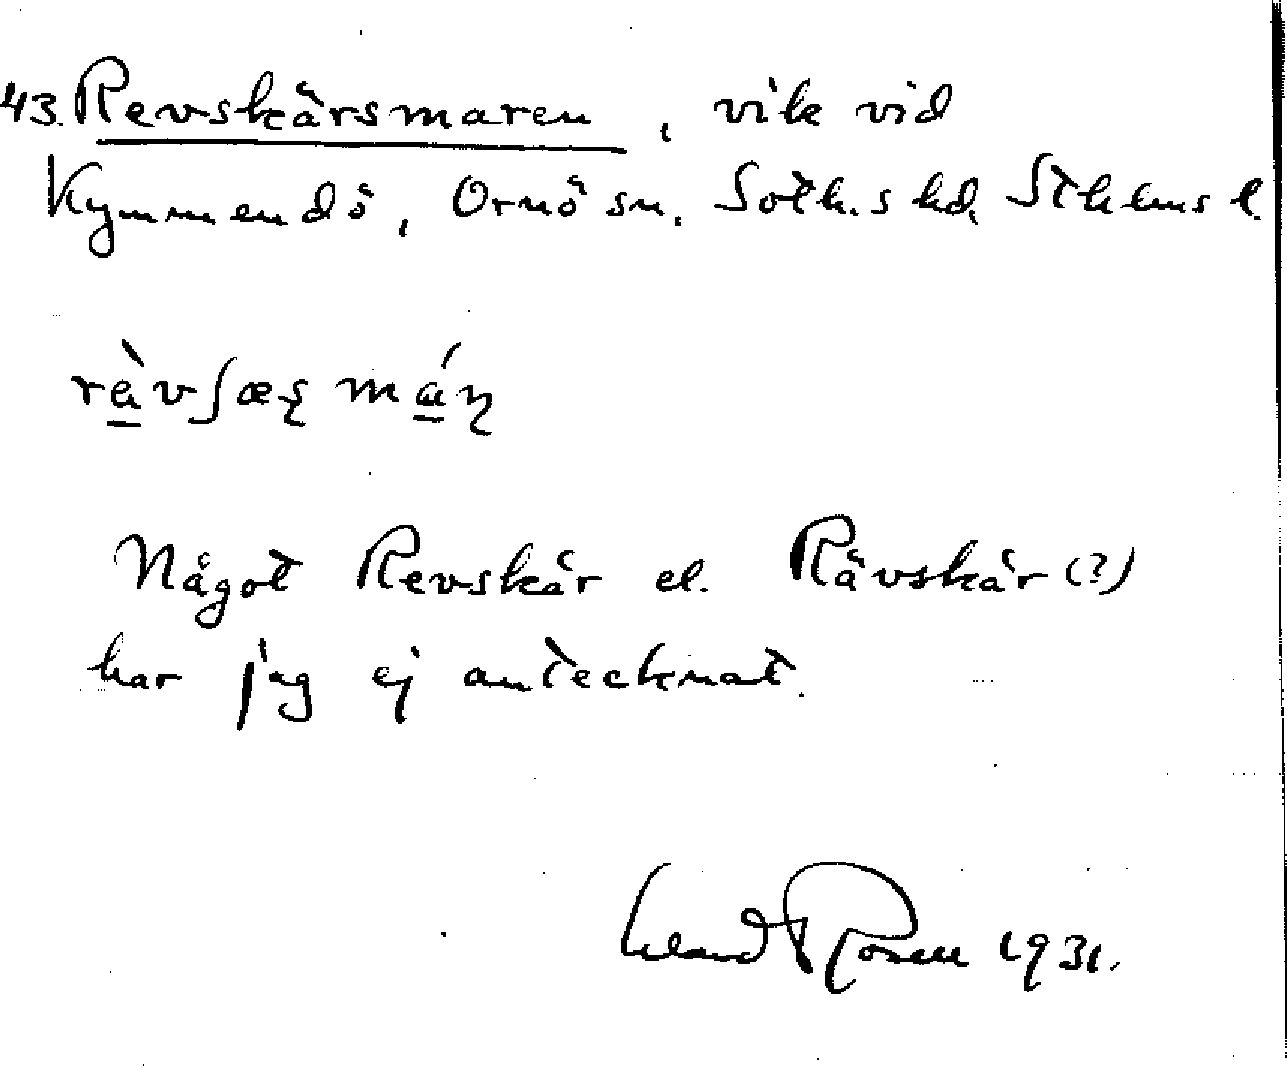 43. Revskärsmaren, vik vid
Kymmendö, Ornö sn. Soth.s hd. Sthlms l.
rȁvʃæʂ máɳ
Något Revskär el. Rävskär (?)
har jag ej antecknat.
Rosell 1931.